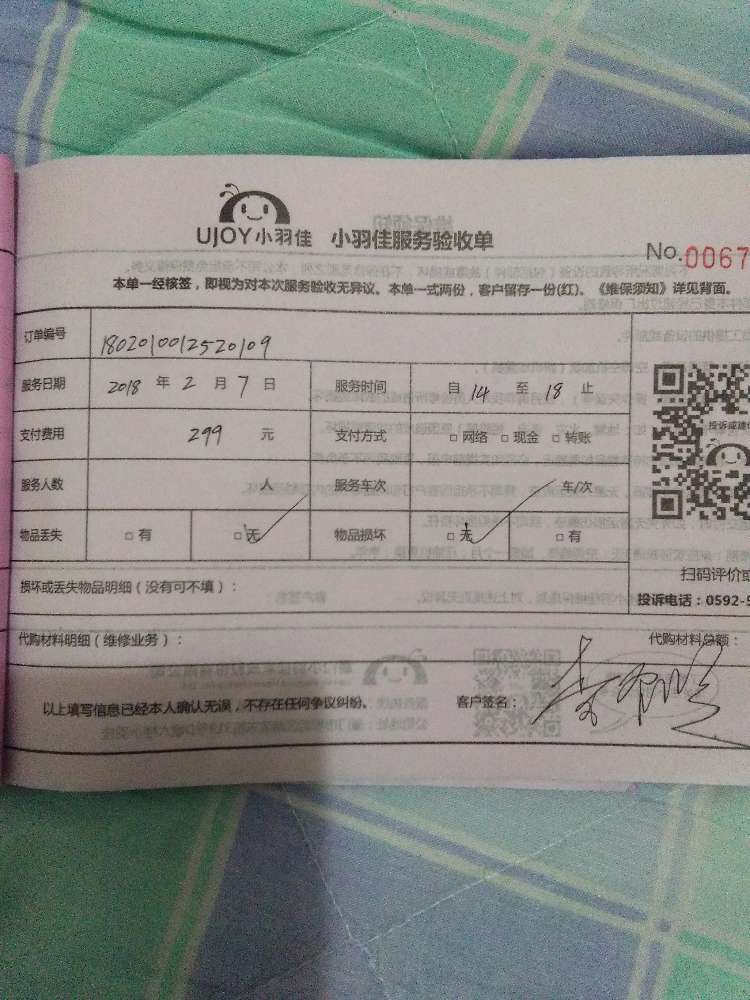 UJOY小羽佳 小羽佳服务验收单
No.0067
本单一经核签，即视为对本次服务验收无异议。本单一式两份，客户留存一份(红)。《维保须知》详见背面。
订单编号 1802010012520109
服务日期 2018 年 2 月 7 日 服务时间 自 14 至 18 止
支付费用 299 元 支付方式 □ 网络 □ 现金 □ 转账
投诉或建议
服务人数 人 服务车次 车/次
物品丢失 □ 有 □ 无 物品损坏 □ 无 □ 有
扫码评价或
损坏或丢失物品明细（没有可不填）：
投诉电话：0592-5
代购材料明细（维修业务）： 代购材料总额：
以上填写信息已经本人确认无误，不存在任何争议纠纷。 客户签名：